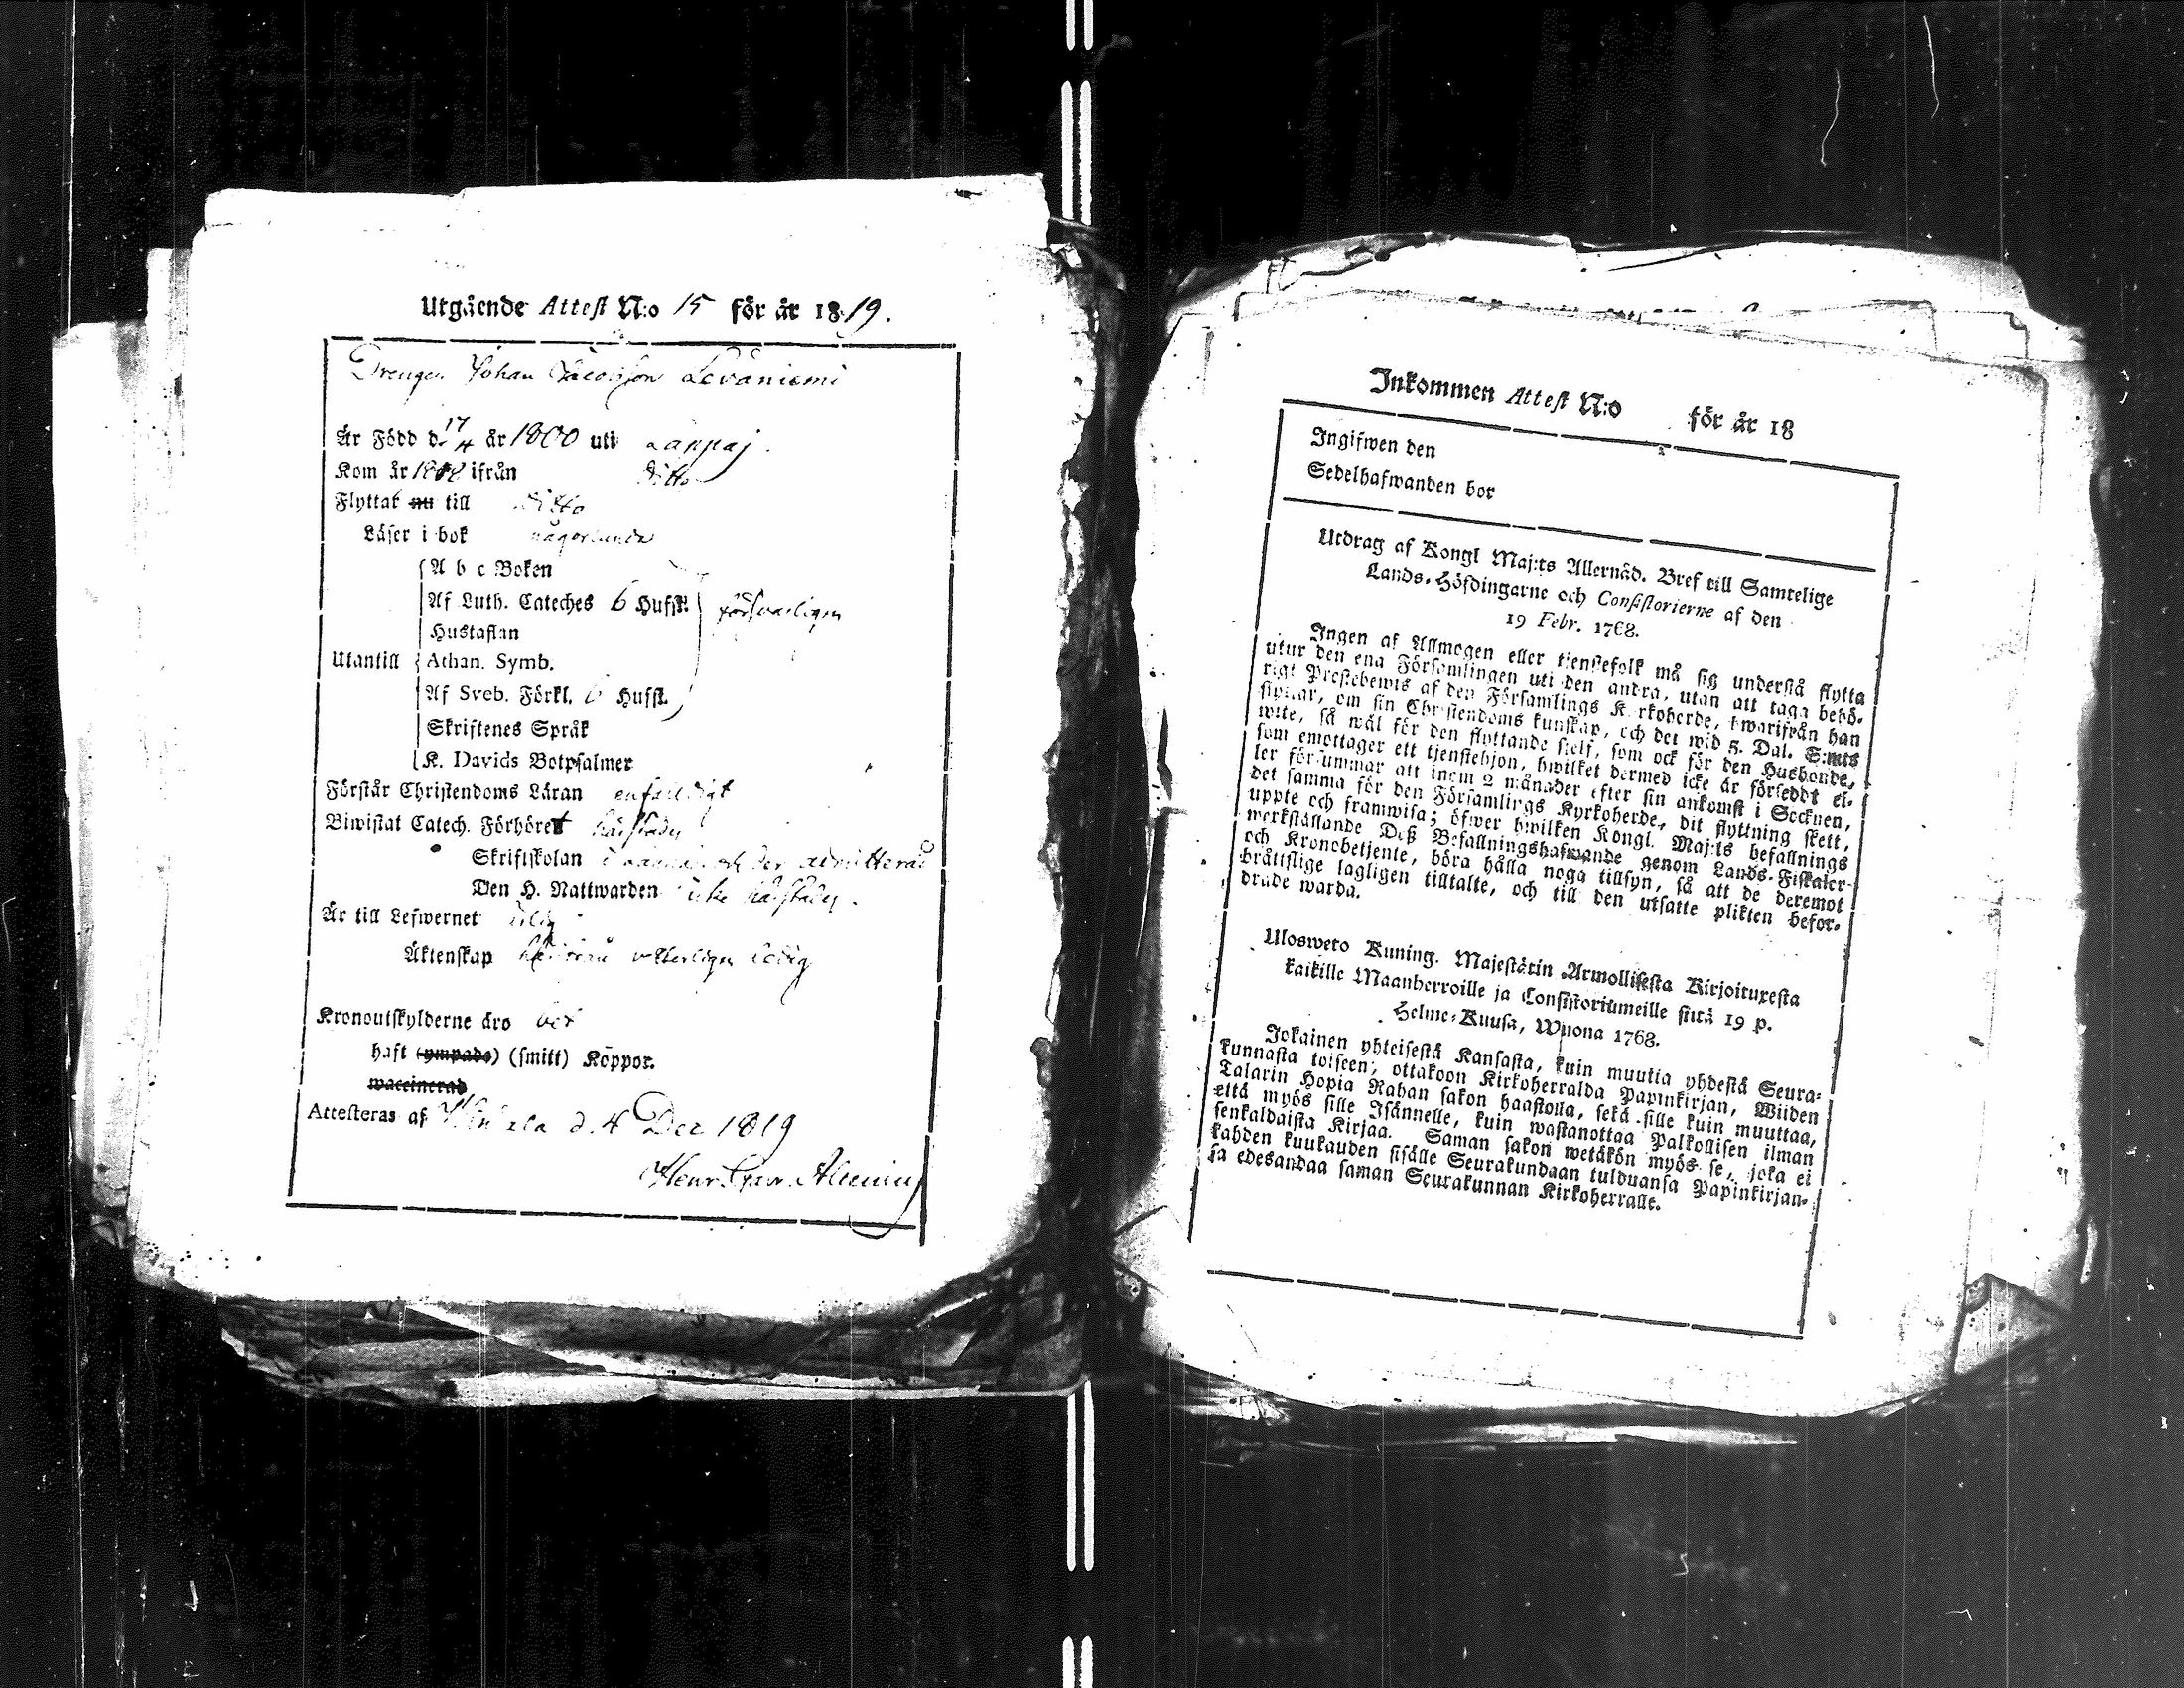 Utgående Attest N:o 15 för år 1819.
Drengen Johan Jacobsson Leväniemi
Är Född d. 17/4 år 1800 uti Lappaj.
Kom år 1818 ifrån Ditto
Flyttat nu till Ditto
Läser i bok någorlunda
A b c Boken
Af Luth. Cateches 6 Hufst. försvarligen
Hustaflan
Utantill Athan. Symb.
Af Sveb. Förkl. 6 Hufst.
Skriftenes Språk
K. Davids Botpsalmer
Förstår Christendoms Läran enfaldigt
Biwistat Catech. Förhöret härstädes
Skriftskolan och der admitterad
Den H. Nattwarden icke härstädes.
Är till Lefwernet ärlig
Äktenskap vetterligen ledig
Kronoutskylderne äro bet
haft (ympade) (smitt) Koppor.
waccinerad
Attesteras af d. 4 Dec 1819
Henr. Gavr.
Inkommen Attest N:o för år 18
Ingifwen den
Sedelhafwanden bor
Utdrag af Kongl Maj:ts Allernåd. Bref till Samtelige
Lands-Höfdingarne och Consistorierne af den
19 Febr. 1768.
Ingen af Allmogen eller tjenstefolk må sig understå flytta
utur den ena Församlingen uti den andra, utan att taga behö-
rigt Prestebewis af den Församlings Kyrkoherde, hwarifrån han
flyttar, om sin Christendoms kunskap, och det wid 5. Dal. S:mts
wite, så wäl för den flyttande sielf, som ock för den Husbonde,
som emottager ett tjenstehjon, hwilket dermed icke är förseddt el-
ler försummar att inom 2 månader efter sin ankomst i Socknen,
det samma för den Församlings Kyrkoherde, dit flyttning skett,
uppte och framwisa; öfwer hwilken Kongl. Maj:ts befallnings
werkställande Deß Befallningshafwande genom Lands-Fiskaler
och Kronobetjente, böra hålla noga tillsyn, så att de deremot
bråttslige lagligen tilltalte, och till den utsatte plikten befor-
drade warda.
Ulosweto Kuning. Majestätin Armollisesta Kirjoituxesta
kaikille Maanherroille ja Consistoriumeille siitä 19 p.
Helme-Kuusa, Wuona 1768.
Jokainen yhteisestä Kansasta, kuin muutta yhdestä Seura-
kunnasta toiseen; ottakoon Kirkoherralda Papinkirjan, Wiiden
Talarin Hopia Rahan sakon haastolla, sekä sille kuin muuttaa,
että myös sille Isännelle, kuin wastanottaa Palkollisen ilman
senkaldaista Kirjaa. Saman sakon wetäkön myös se, joka ei
kahden kuukauden sisälle Seurakundaan tulduansa Papinkirjan-
sa edesandaa saman Seurakunnan Kirkoherralle.